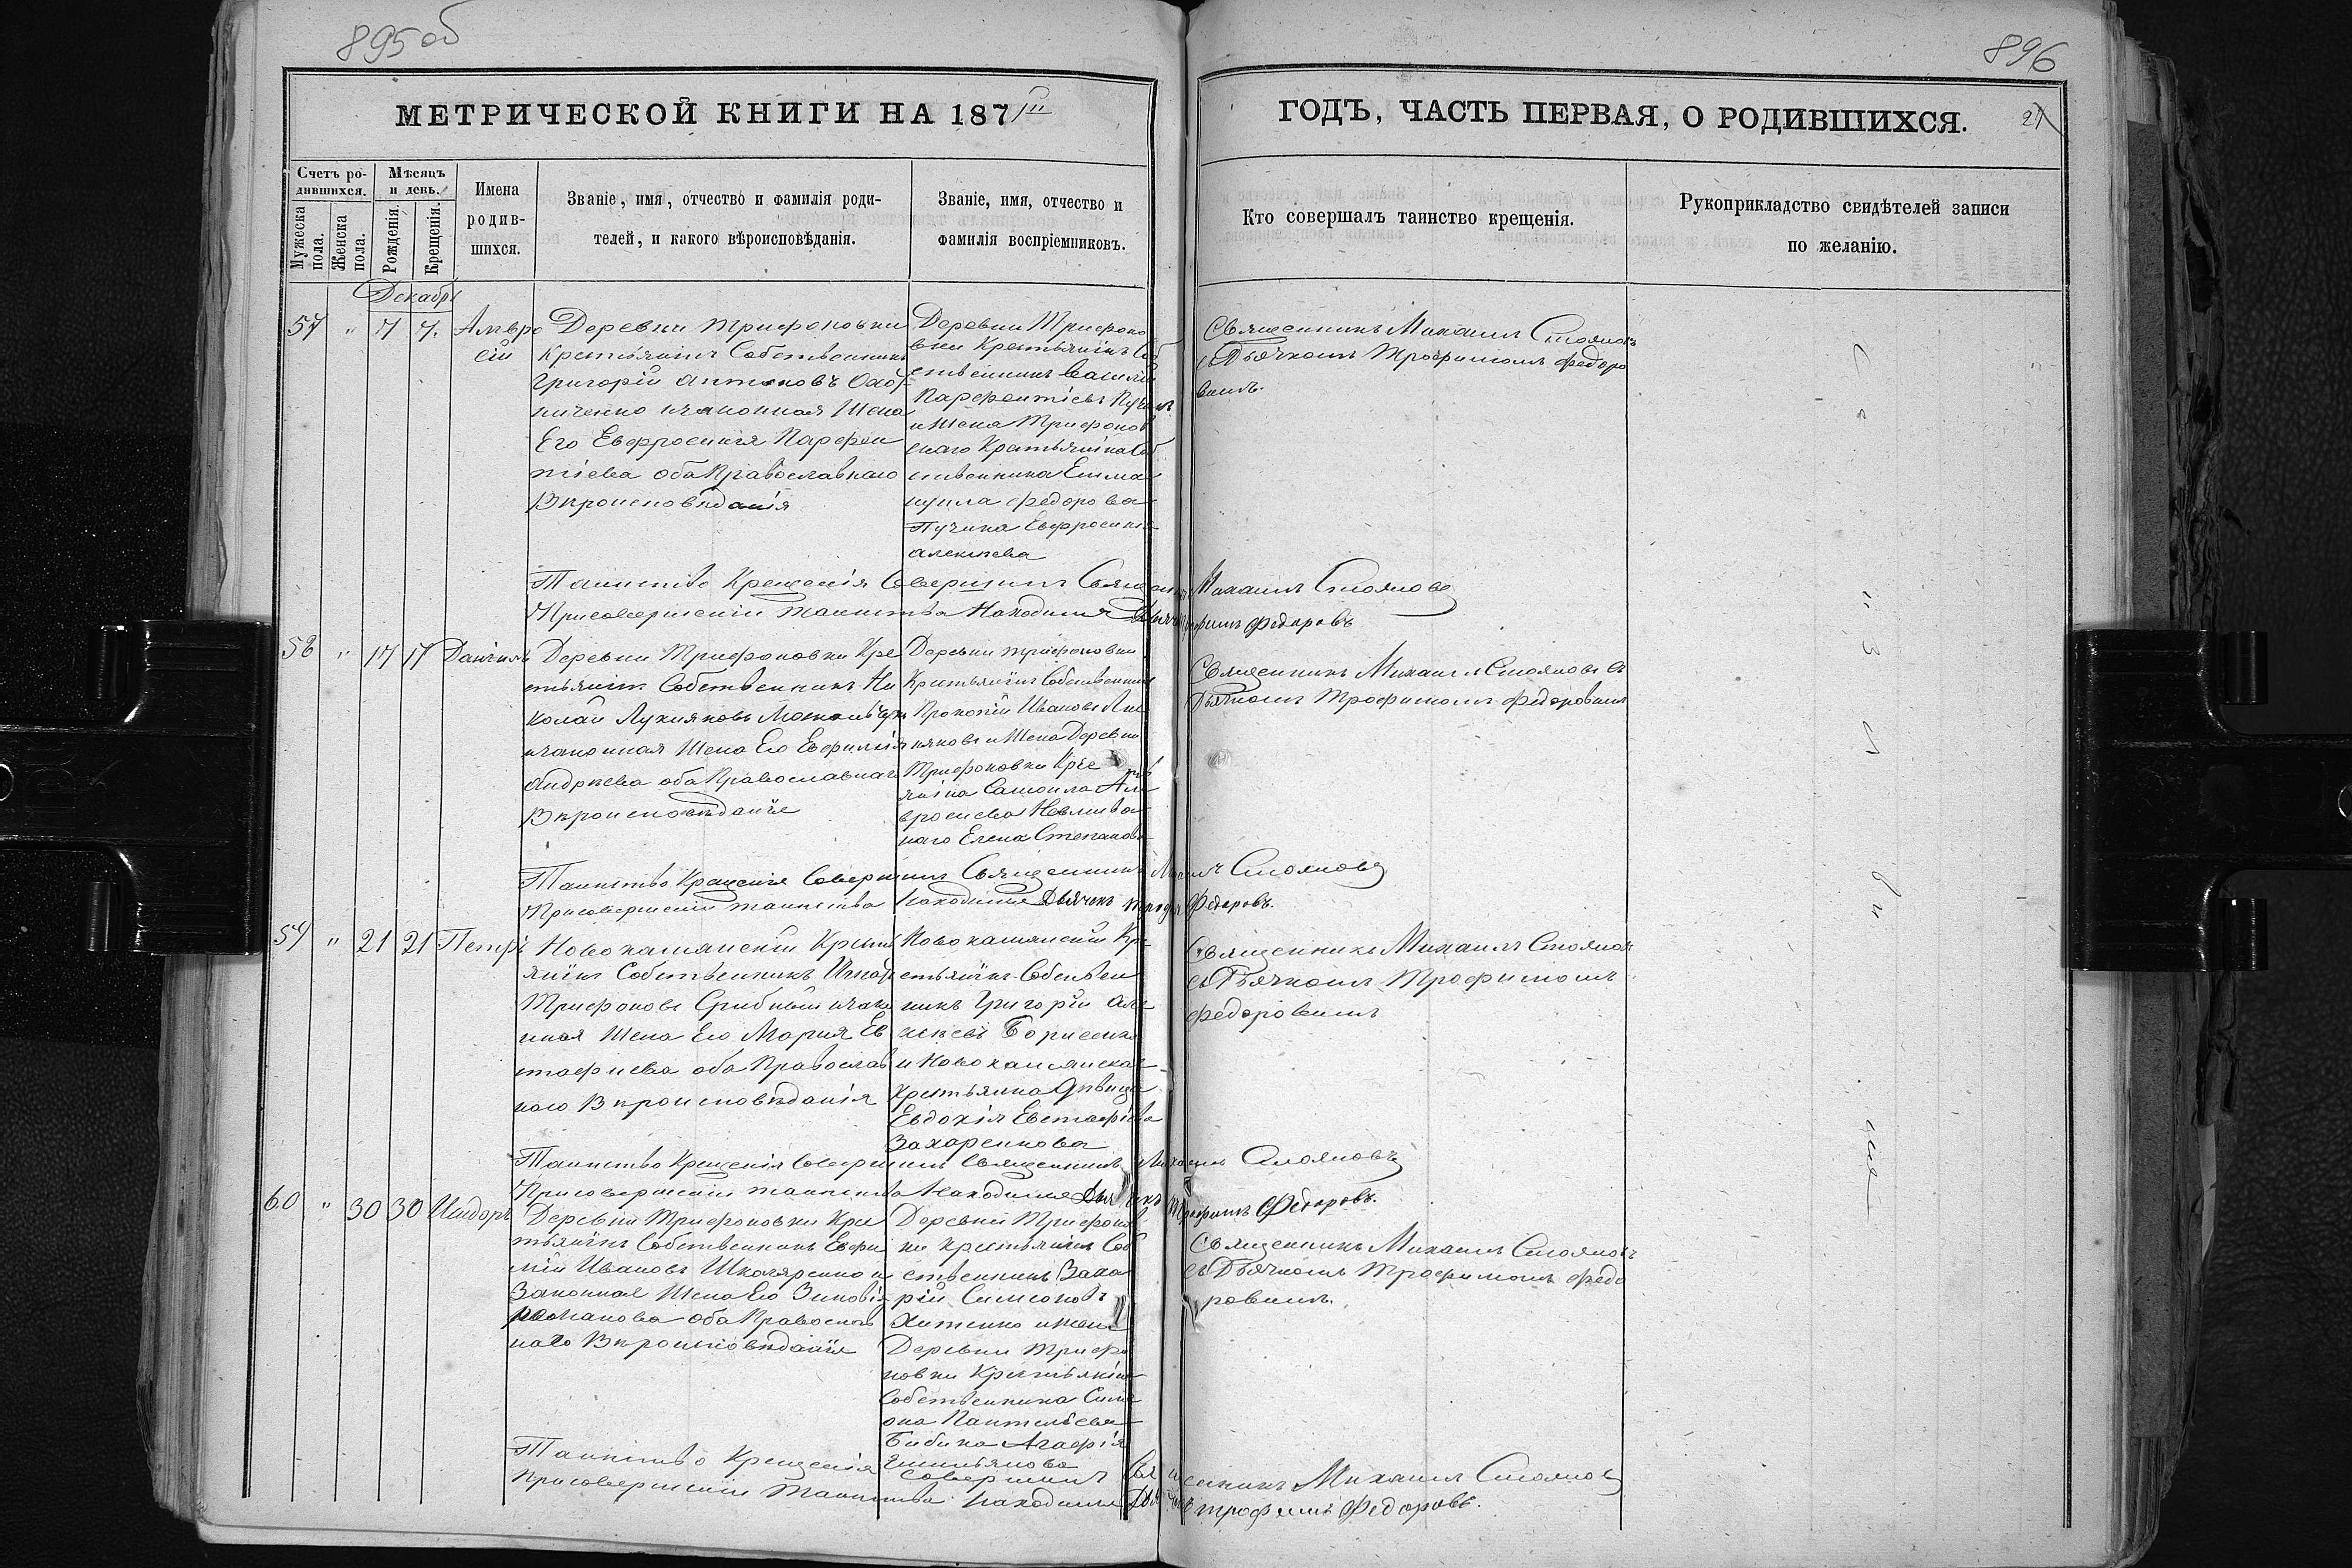 895 об
896
МЕТРИЧЕСКОЙ КНИГИ НА 1871й
ГОДЪ, ЧАСТЬ ПЕРВАЯ, О РОДИВШИХСЯ.
Счетъ ро-
дившихся.
Мужеска
пола.
Женска
пола.
Мѣсяцъ
и день.
Рожденія.
Крещенія.
Имена
родив-
шихся.
Званіе, имя, отчество и фамилія роди-
телей, и какого вѣроисповѣданія.
Званіе, имя, отчество и
фамилія воспріемниковъ.
Кто совершалъ таинство крещенія.
Рукоприкладство свидѣтелей записи
по желанію.
Декабрь
57 " 7 7.
Амвро
сій
Деревни Трифоновки
Крестьянинъ Собственникъ
Григорій Антоновъ
Законная Жена
Его Евфросинія Парфен
тіева оба Православнаго
Вѣроисповѣданія
Деревни Трифоно
вки Крестьянинъ Соб
ственникъ Василій
Парфентіевъ
и Жена Трифонов
скаго Крестьянина Соб
ственника
Федорова
Пугина Евфросинія
Алексѣева
Священникъ Михаилъ Стояновъ
съ Дьячкомъ Трофимомъ Федоро
вымъ.
Таинство Крещенія Совершилъ Священникъ Михаилъ Стояновъ
При совершеніи таинства Находился Дьячекъ Трофимъ Федоровъ
58 " 17 17
Даніилъ
Деревни Трифоновки Кре
стьянинъ Собственникъ Ни
колай Лукьяновъ
и законная Жена Его Евфимія
Андреева оба Православнаго
Вѣроисповѣданія
Деревни Трифоновки
Крестьянинъ Собственникъ
Прокопій Ивановъ
и Жена Деревни
Трифоновки Крест
янина Самоила Ам
вросиева
Елена Степанова
Священникъ Михаилъ Стояновъ съ
Дьячкомъ Трофимомъ Федоровымъ
Таинство Крещенія Совершилъ Священникъ Михаилъ Стояновъ
При совершеніи таинства Находился Дьячекъ Трофимъ Федоровъ.
59 " 21 21 Петръ
Крест
янинъ Собственникъ
Трифоновъ и зако
нная Жена Его Марія Ев
стафиева оба Православ
наго Вѣроисповѣданія
Кре
стьянинъ Собствен
никъ Григорій Але
ксѣевъ Борисенко
и
Крестьянка Дѣвица
Евдокія Евстафіева
Захаренкова
Священникъ Михаилъ Стояновъ
съ Дьячкомъ Трофимомъ
Федоровымъ
Таинство Крещенія Совершилъ Священникъ Михаилъ Стояновъ
При совершеніи таинства Находился Дьячекъ Трофимъ Федоровъ.
60 " 30 30 Исидоръ
Деревни Трифоновки Крес
тьянинъ Собственникъ Евфи
мій Ивановъ Школяренко и
Законная Жена Его Зиновія
Романова оба Православ
наго Вѣроисповѣданія
Деревни Трифонов
ки Крестьянинъ Соб
ственникъ Заха
рій Симеоновъ
и жена
Деревни Трифо
новки Крестьянина
Собственника Симе
она Пантелѣева
Бибика Агафія
Емильянова
Священникъ Михаилъ Стояновъ
съ Дьячкомъ Трофимомъ Федо
ровымъ.
Таинство Крещенія Совершилъ Священникъ Михаилъ Стояновъ
При совершеніи Таинства находился Дьячекъ Трофимъ Федоровъ.